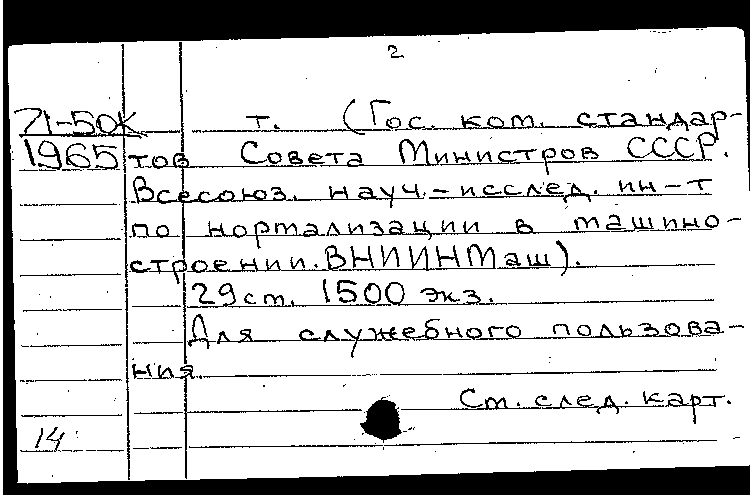 2
71-50К т. (Гос. ком. стандар-
1965 тов Совета Министров СССР.
Всесоюз. науч.-исслед. ин-т
по нормализации в машино-
строении. ВНИИНМаш).
29 ст. 1500 экз.
Для служебного пользова-
ния.
См. след. карт.
14